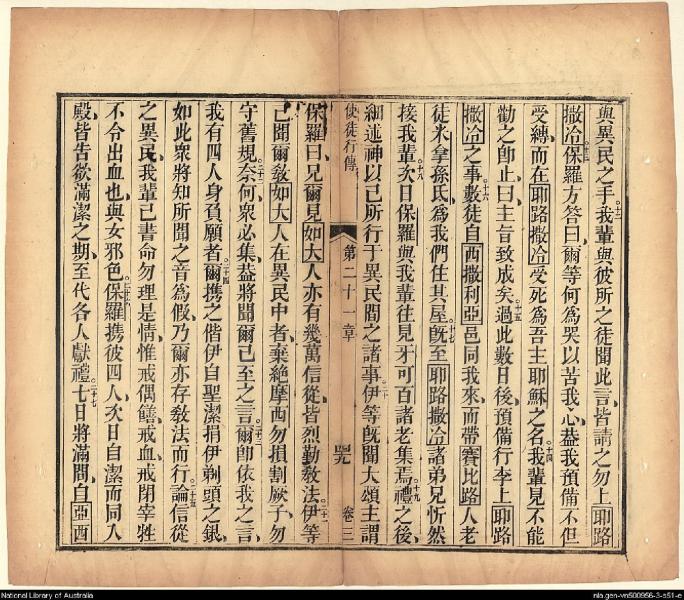 與異民之手十二我輩與彼所之徒聞此言皆請之勿上耶路
撒冷十三保羅方答曰爾等何為哭以苦我心葢我預備不但
受縛而在耶路撒冷受死為吾主耶穌之名十四我輩見不能
勸之即止曰主旨致成矣十五過此數日後預備行李上耶路
撒冷十六之事數徒自西撒利亞邑同我來而帶賽比路人老
徒米拿孫氏為我們住其屋十七旣至耶路撒冷諸弟兄忻然
接我輩十八次日保羅與我輩往見牙可百諸老集焉十九禮之後
細述神以己所行于異民間之諸事二十伊等旣聞大頌主謂
使徒行傳 第二十一章 卷三
保羅曰兄爾見如大人亦有幾萬信從皆烈勤教法二十一伊等
己聞爾敎如大人在異民中者棄絶摩西勿損割厥子勿
守舊規二十二奈何衆必集葢將聞爾己至之言二十三爾卽依我之言
我有四人身負願者二十四爾携之偕伊自聖潔捐伊剃頭之銀
如此衆將知所聞之音為假乃爾亦存敎法而行二十五論信從
之異民我輩己書命勿理是情惟戒偶饍戒血戒閉宰牲
不令出血也與女邪色二十六保羅携彼四人次日自潔而同入
殿皆告欲滿潔之期至代各人獻禮二十七七日將滿間自亞西
National Library of Australia
nla.gen-vn500956-3-s51-e